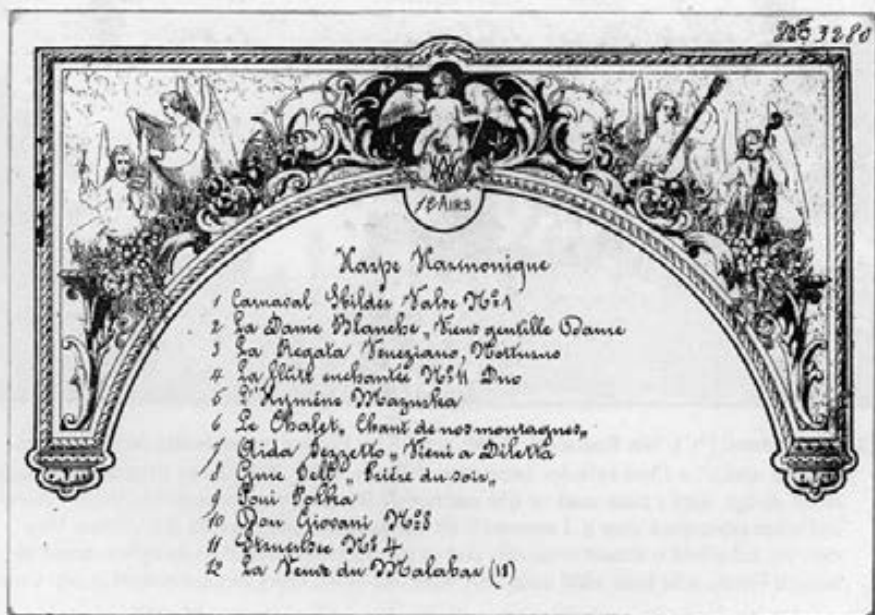 No 3280
12 AIRS
Harpe Harmonique
1 Carnaval Valse No 1
2 La Dame Blanche „ Viens gentille Dame
3 La Regata Veneziano, Notturno
4 La flûte enchantée No 11 Duo
5 L'Hymène Mazurka
6 Le Chalet „ Chant de nos montagnes „
7 Aida Terzetto „ Vieni a Diletta
8 Guil. Tell „ Prière du soir „
9 Poni Polka
10 Don Giovani No 8
11 No 4
12 La Venve du Malabar (18)